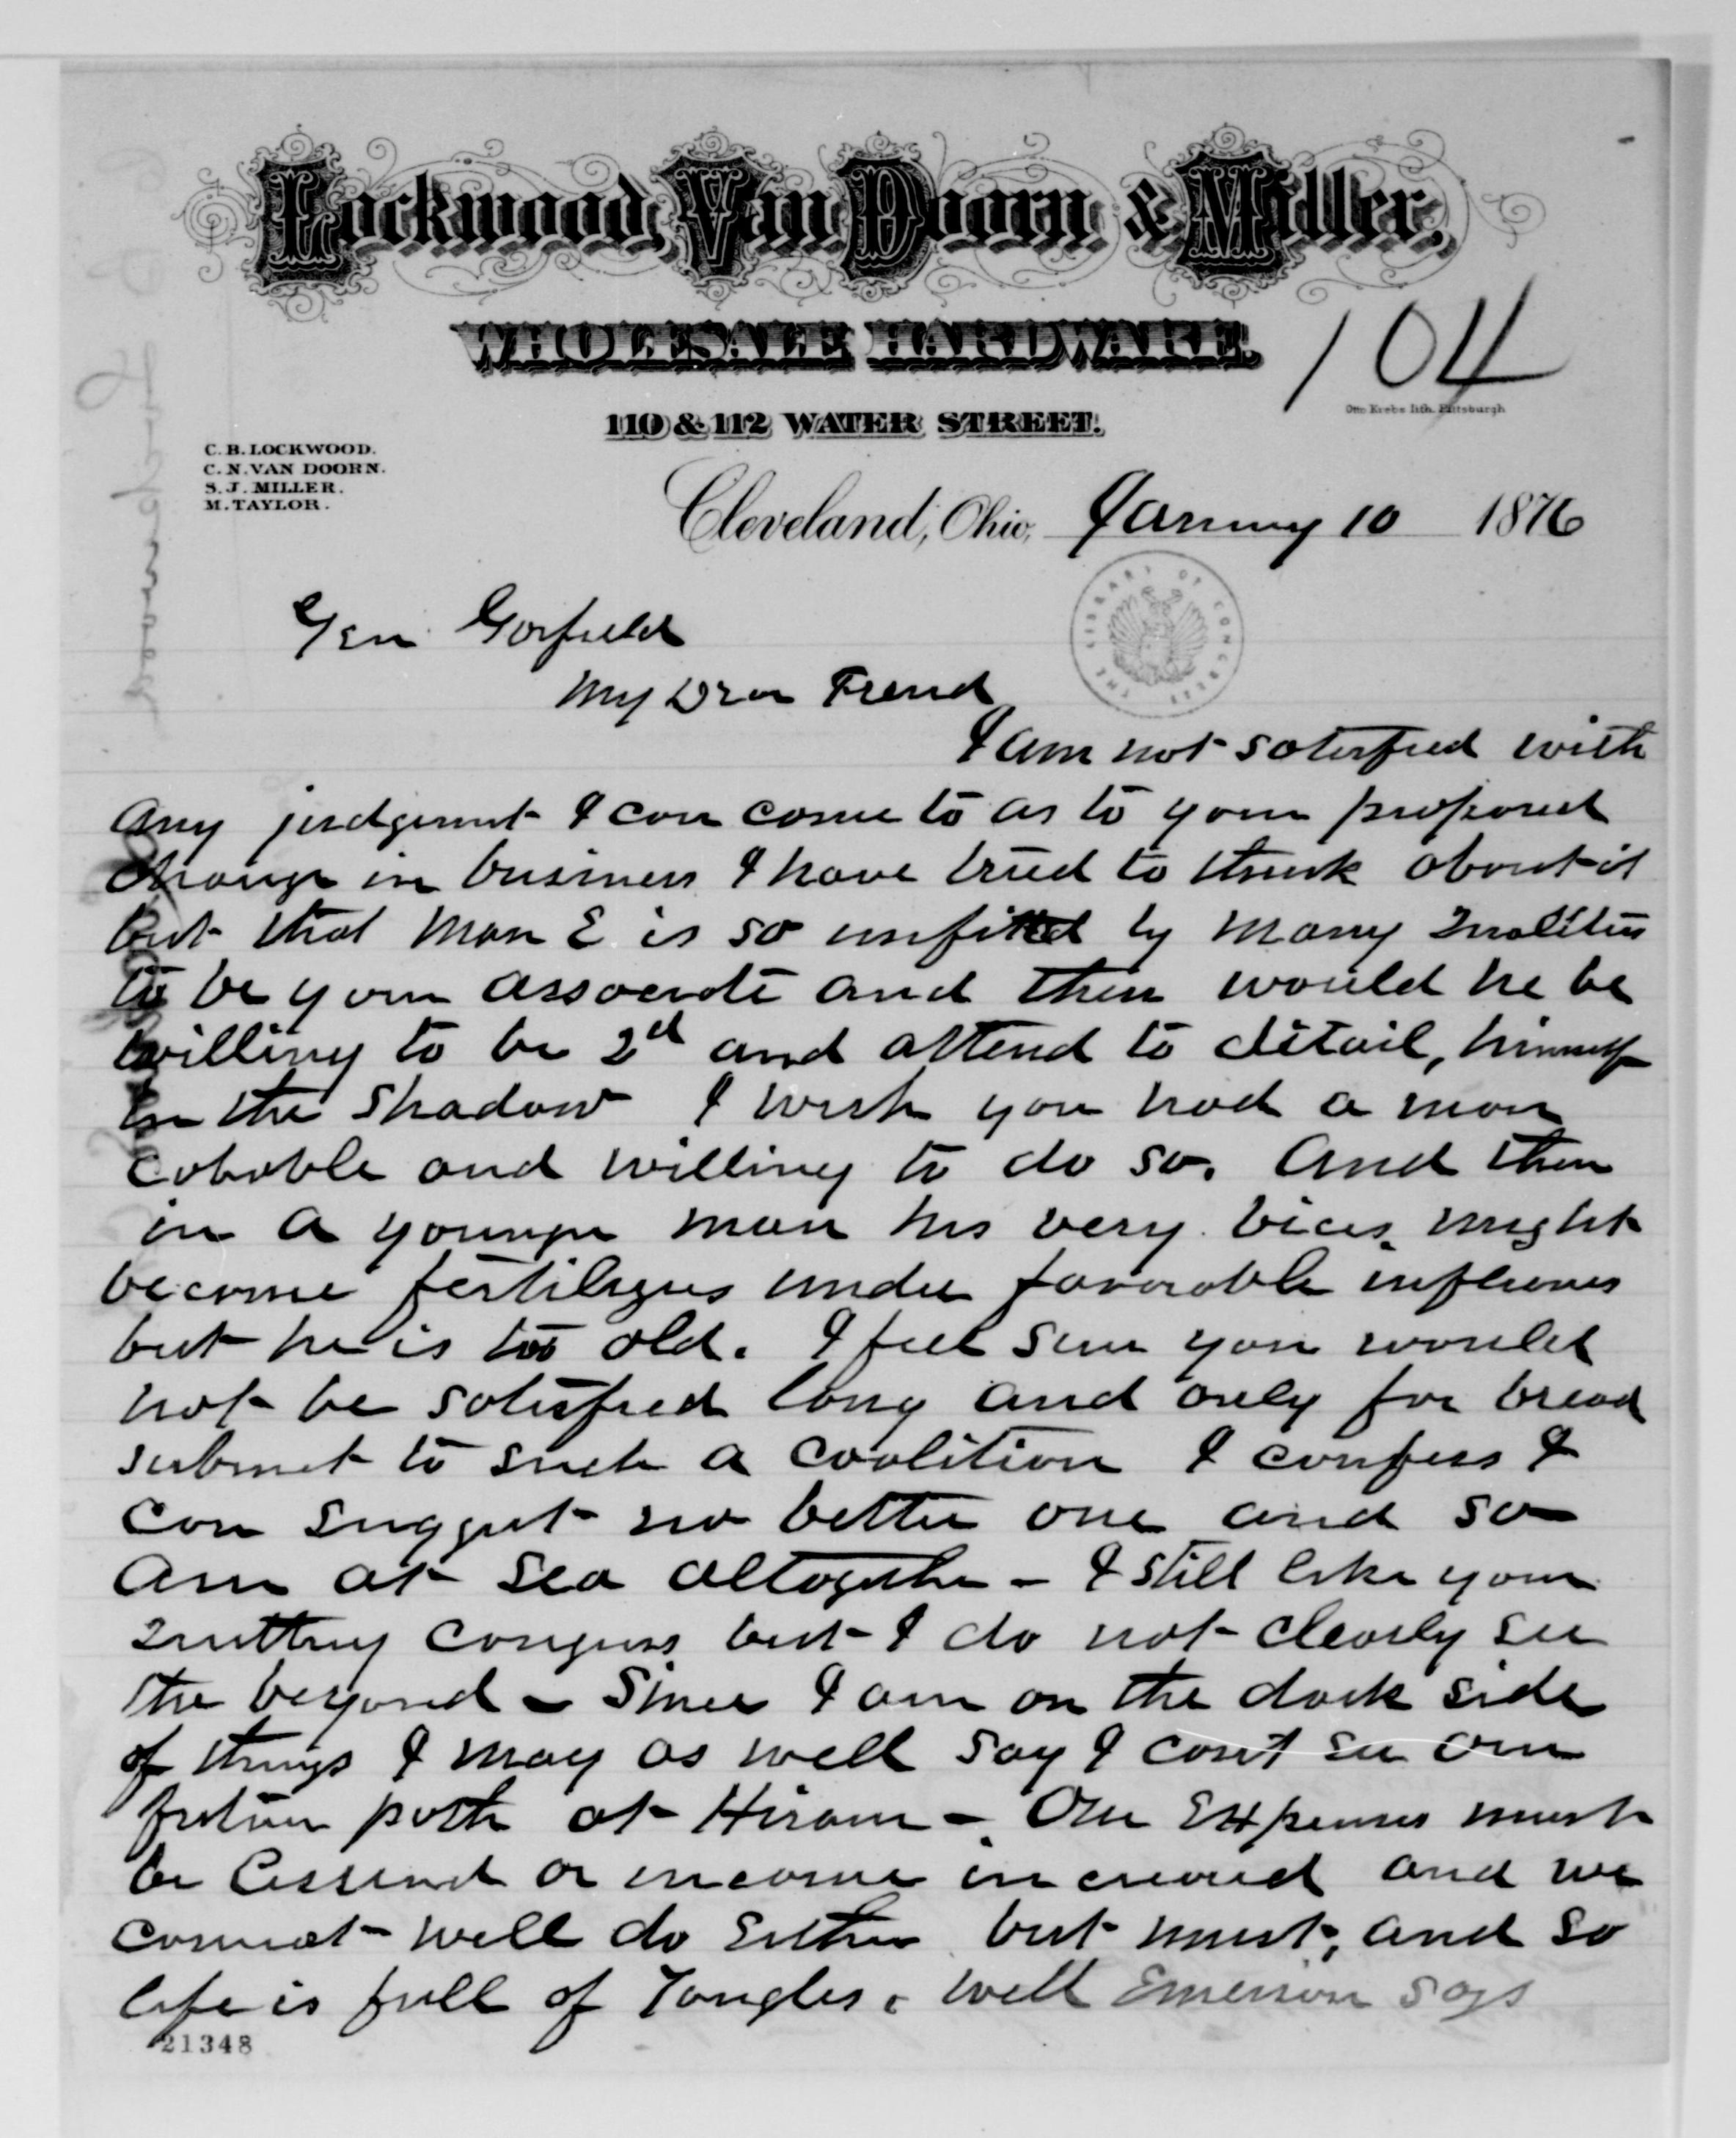 Lockwood, Van Doorn & Miller,
WHOLESALE HARDWARE.
104
Otto Krebs lith. Pittsburgh
110 & 112 WATER STREET.
C. B. LOCKWOOD.
C. N. VAN DOORN.
S. J. MILLER.
M. TAYLOR.
Cleveland, Ohio, January 10 1876
THE LIBRARY OF CONGRESS
Gen Garfield
My Dear Friend
I am not satisfied with
any judgment I can come to as to your proposed
change in business I have tried to think about it
but that man E. is so unfitted by many qualities
to be your associate and then would he be
willing to be 2d and attend to detail, himself
in the shadow I wish you had a man
capable and willing to do so. And then
in a younger man his very vices might
become fertilizers under favorable influences
but he is too old. I feel sure you would
not be satisfied long and only for bread
submit to such a coalition I confess I
can suggest no better one and so
am at sea altogether - I still like your
quitting congress but I do not clearly see
the beyond - Since I am on the dark side
of things I may as well say I can't see our
future path at Hiram - Our Expenses must
be lessened or income increased and we
cannot well do Either but must, and so
life is full of Tangles. Well Emerson says
21348